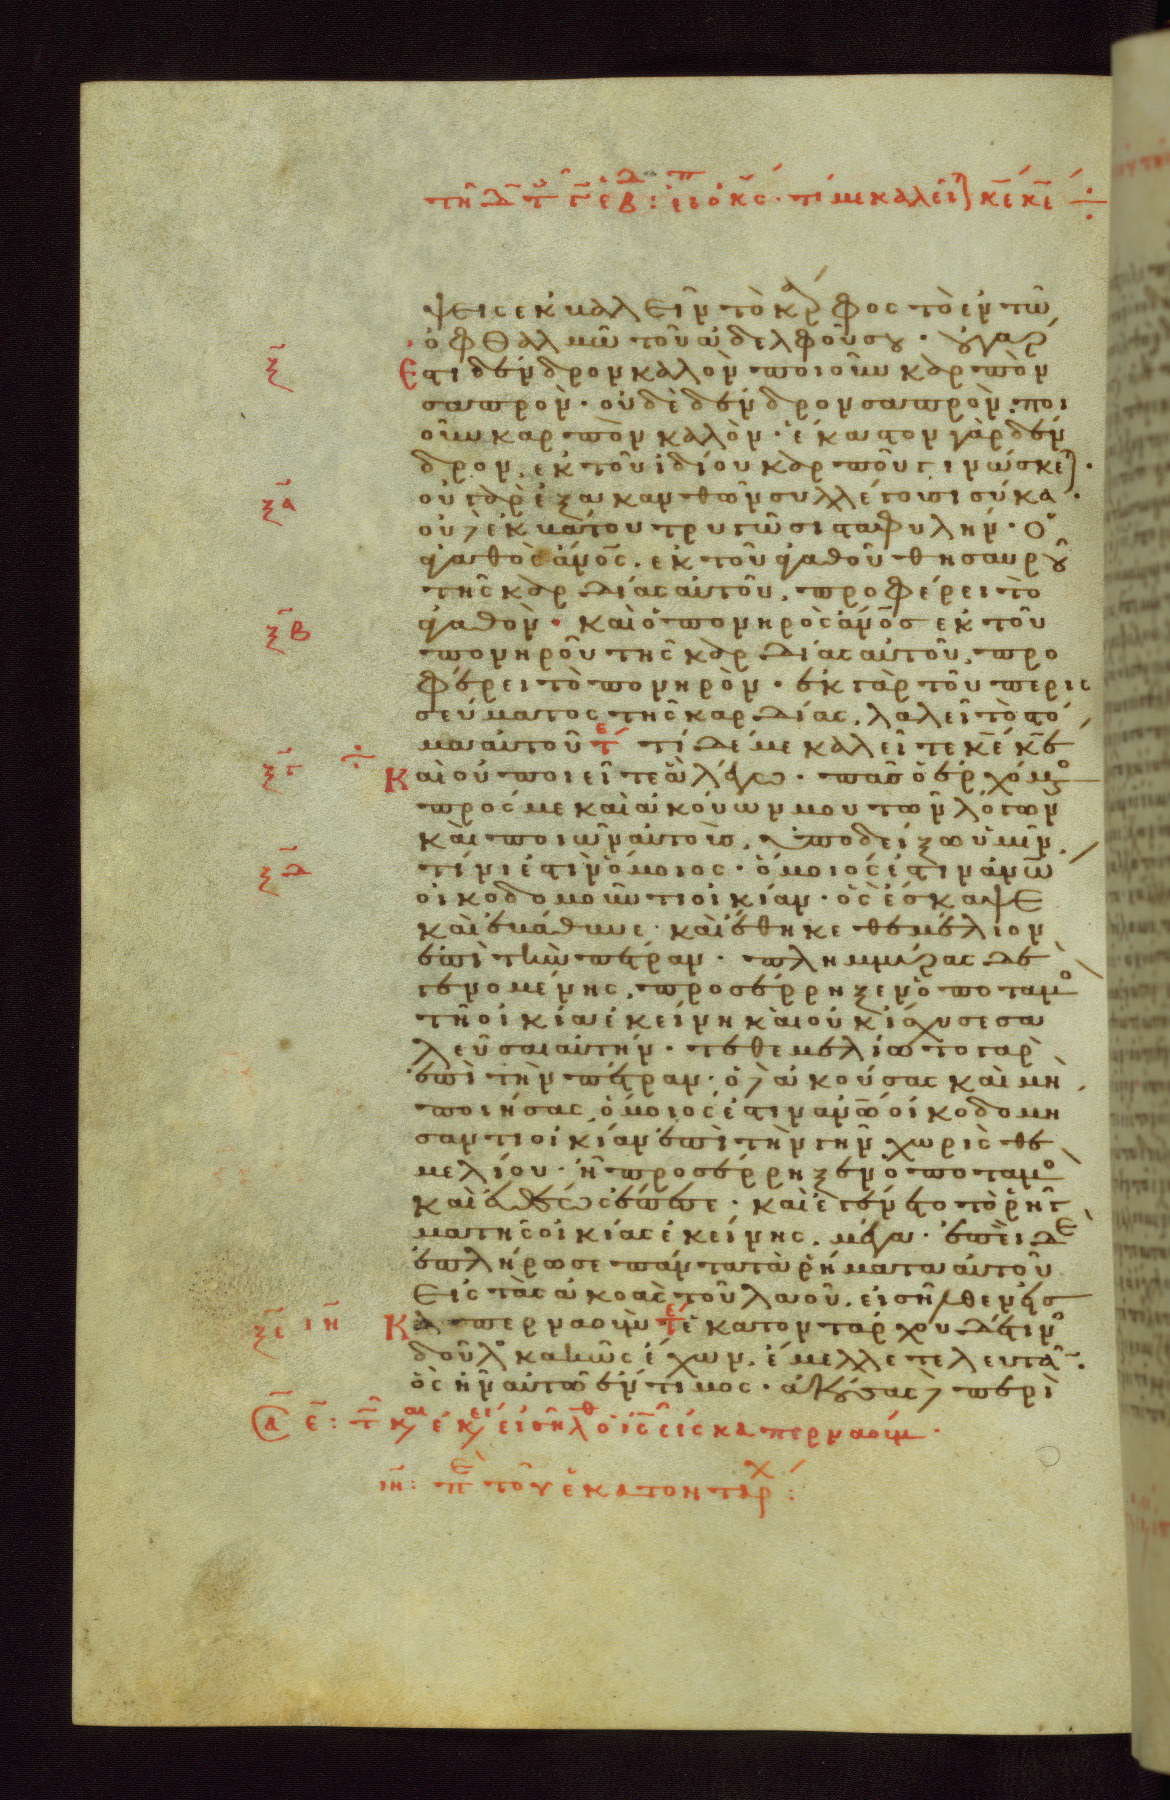 τῆ δ τ γ ἑβδ : εἶπ ὁ κς · τί με καλεῖτ κε κε ÷
ψεις ἐκβαλεῖν τὸ κάρφος τὸ ἐν τῶ
ὀφθαλμῶ τοῦ ἀδελφοῦ σου · οὐ γάρ
ξ
Ἐστι δένδρον καλὸν ποιοῦν καρπὸν
σαπρὸν · οὐδὲ δένδρον σαπρὸν, ποι
οῦν καρπὸν καλὸν · ἕκαστον γὰρ δέν
δρον, ἐκ τοῦ ἰδίου καρποῦ γινώσκετ ·
ξα
οὐ γὰρ ἐξ ἀκανθῶν συλλέγουσι σύκα ·
οὐδὲ ἐκ βάτου τρυγῶσι σταφυλήν · Ὁ
ἀγαθὸς ἄνος, ἐκ τοῦ ἀγαθοῦ θησαυροῦ
τῆς καρδίας αὐτοῦ, προφέρει τὸ
ξβ
ἀγαθὸν · καὶ ὁ πονηρὸς ἄνος ἐκ τοῦ
πονηροῦ τῆς καρδίας αὐτοῦ, προ
φέρει τὸ πονηρὸν · ἐκ γὰρ τοῦ περισ
σεύματος τῆς καρδίας, λαλεῖ τὸ στό
μα αὐτοῦ τε τί δέ με καλεῖτε κε κε
ξγ ÷
Καὶ οὐ ποιεῖτε ἃ λέγω · πᾶς ὁ ἐρχόμενος
πρός με καὶ ἀκούων μου τῶν λόγων
καὶ ποιῶν αὐτοὺς, ὑποδείξω ὑμῖν,
ξδ
τίνι ἐστὶν ὅμοιος · ὅμοιός ἐστιν ἀνω
οἰκοδομοῦντι οἰκίαν · ὃς ἔσκαψε
καὶ ἐβάθυνε · καὶ ἔθηκε θεμέλιον
ἐπὶ τὴν πέτραν · πλημμύρας δὲ
γενομένης, προσέρρηξεν ὁ ποταμὸς
τῆ οἰκία ἐκείνη καὶ οὐκ ἴσχυσε σα
λεῦσαι αὐτήν · τεθεμελίωτο γὰρ
ἐπὶ τὴν πέτραν · ὁ δὲ ἀκούσας καὶ μὴ
ποιήσας, ὅμοιός ἐστιν ἀνω οἰκοδομή
σαντι οἰκίαν ἐπὶ τὴν γῆν χωρὶς θε
μελίου · ἧ προσέρρηξεν ὁ ποταμὸς
καὶ εὐθέως ἔπεσε · καὶ ἐγένετο τὸ ῥῆγ
μα τῆς οἰκίας ἐκείνης, μέγα · ἐπεὶ δὲ
ἐπλήρωσε πάντα τὰ ῥήματα αὐτοῦ
Εἰς τὰς ἀκοὰς τοῦ λαοῦ, εἰσῆλθεν εἰς
ξε ιη
Καπερναοὺμ τε ἑκατοντάρχου δέ τινος
δοῦλος κακῶς ἔχων, ἔμελλε τελευτᾶν ·
ὃς ἦν αὐτῶ ἔντιμος · ἀκούσας δὲ περὶ
Σα ε : τ και ἐκει εἰσῆλθ ὁ ις εἰς καπερναούμ ·
ιη : πε τοῦ ἑκατοντάρχ :